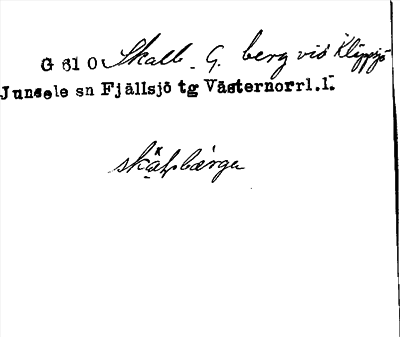 G 61 O Skalb. G. berg vid Klippsjö
Junsele sn Fjällsjö tg Västernorrl.l.